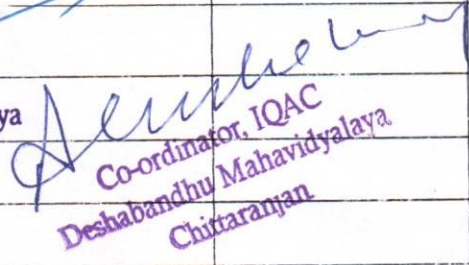 ya
Co-ordinator, IQAC
Deshabandhu Mahavidyalaya
Chittaranjan